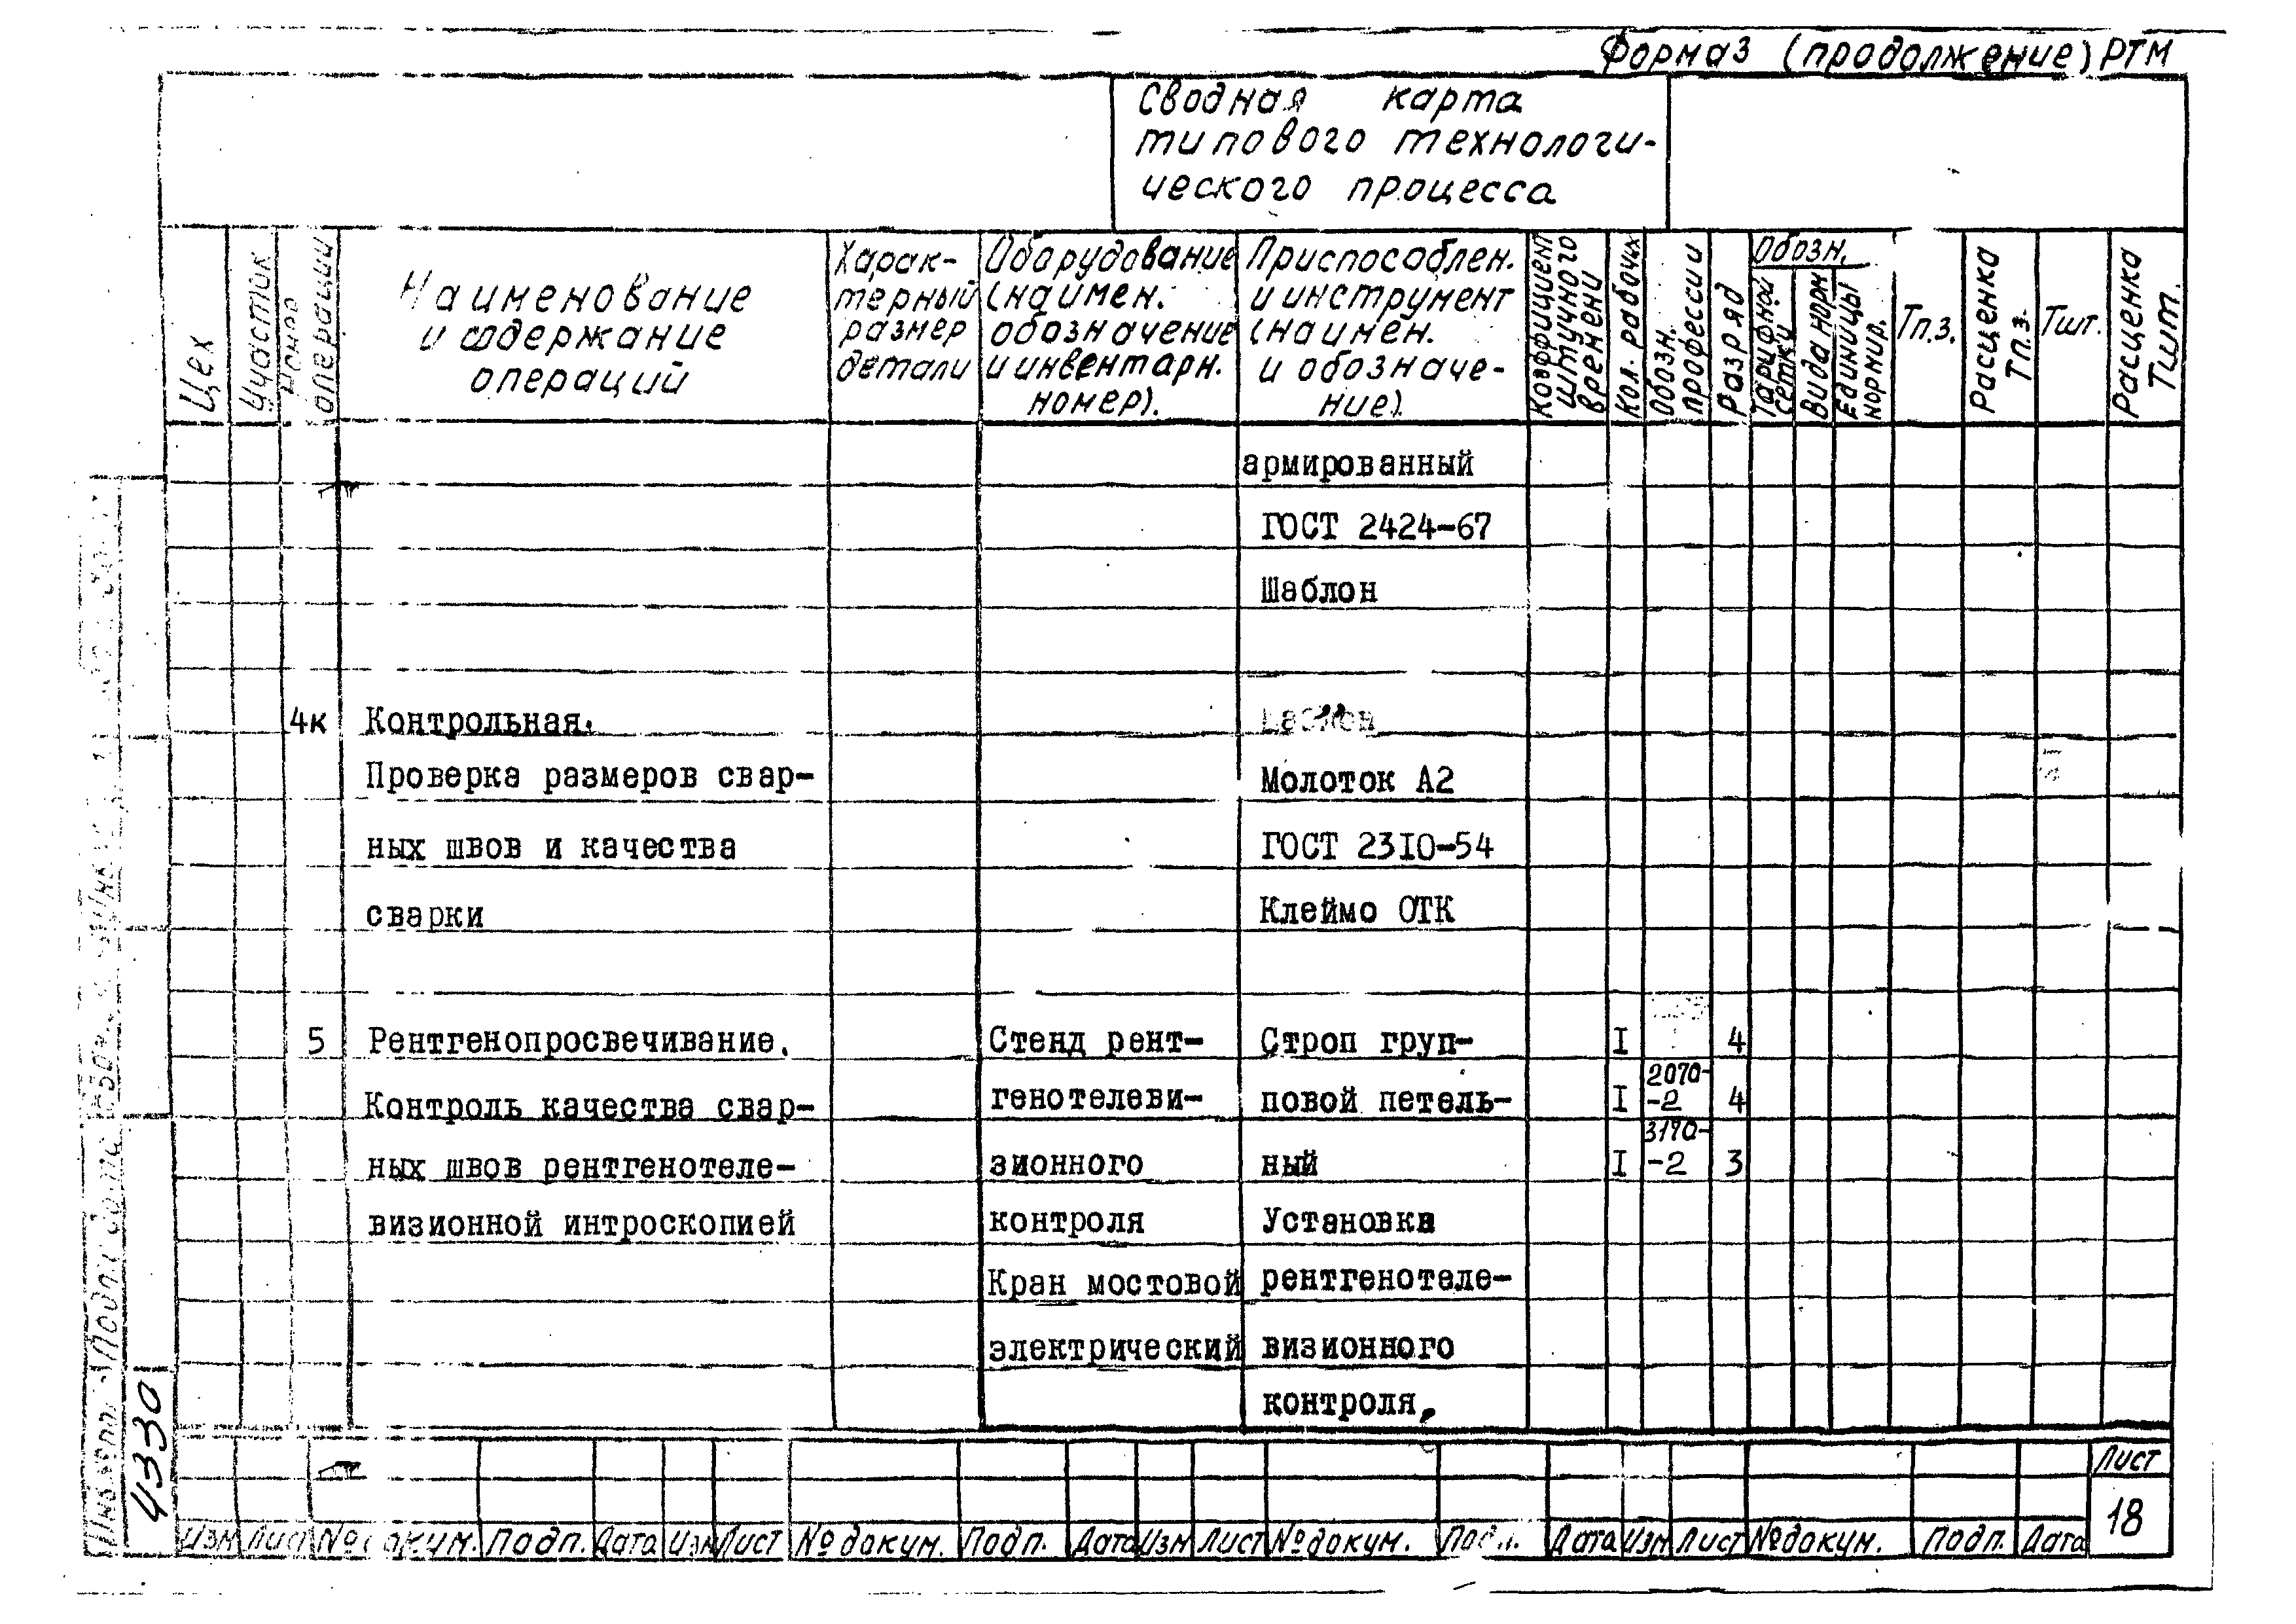 Форма 3 (продолжение) РТМ
Сводная карта
типового технологи-
ческого процесса
Цех
Участок
Номер операции
Наименование
и содержание
операций
Харак-
терный
размер
детали
Оборудование
(наимен.
обозначение
и инвентарн.
номер).
Приспособлен.
и инструмент
(наимен.
и обозначе-
ние).
Коэффициент
штучного
времени
Кол. рабочих
Обозн.
профессии
Разряд
Обозн.
Тарифной
сетки
Вида норм
Единицы
нормир.
Тп.з.
Расценка
Тп.з.
Тшт.
Расценка
Тшт.
армированный
ГОСТ 2424-67
Шаблон
4к Контрольная.
Проверка размеров свар- Молоток А2
ных швов и качества ГОСТ 2310-54
сварки Клеймо ОТК
5 Рентгенопросвечивание. Стенд рент- Строп груп- I 4
Контроль качества свар- генотелеви- повой петель- I 2070--2 4
ных швов рентгенотеле- зионного ный I 3170--2 3
визионной интроскопией контроля Установка
Кран мостовой рентгенотеле-
электрический визионного
контроля,
4330
Лист
18
Изм Лист № докум. Подп. Дата Изм Лист № докум. Подп. Дата Изм Лист № докум. Подп. Дата Изм Лист № докум. Подп. Дата